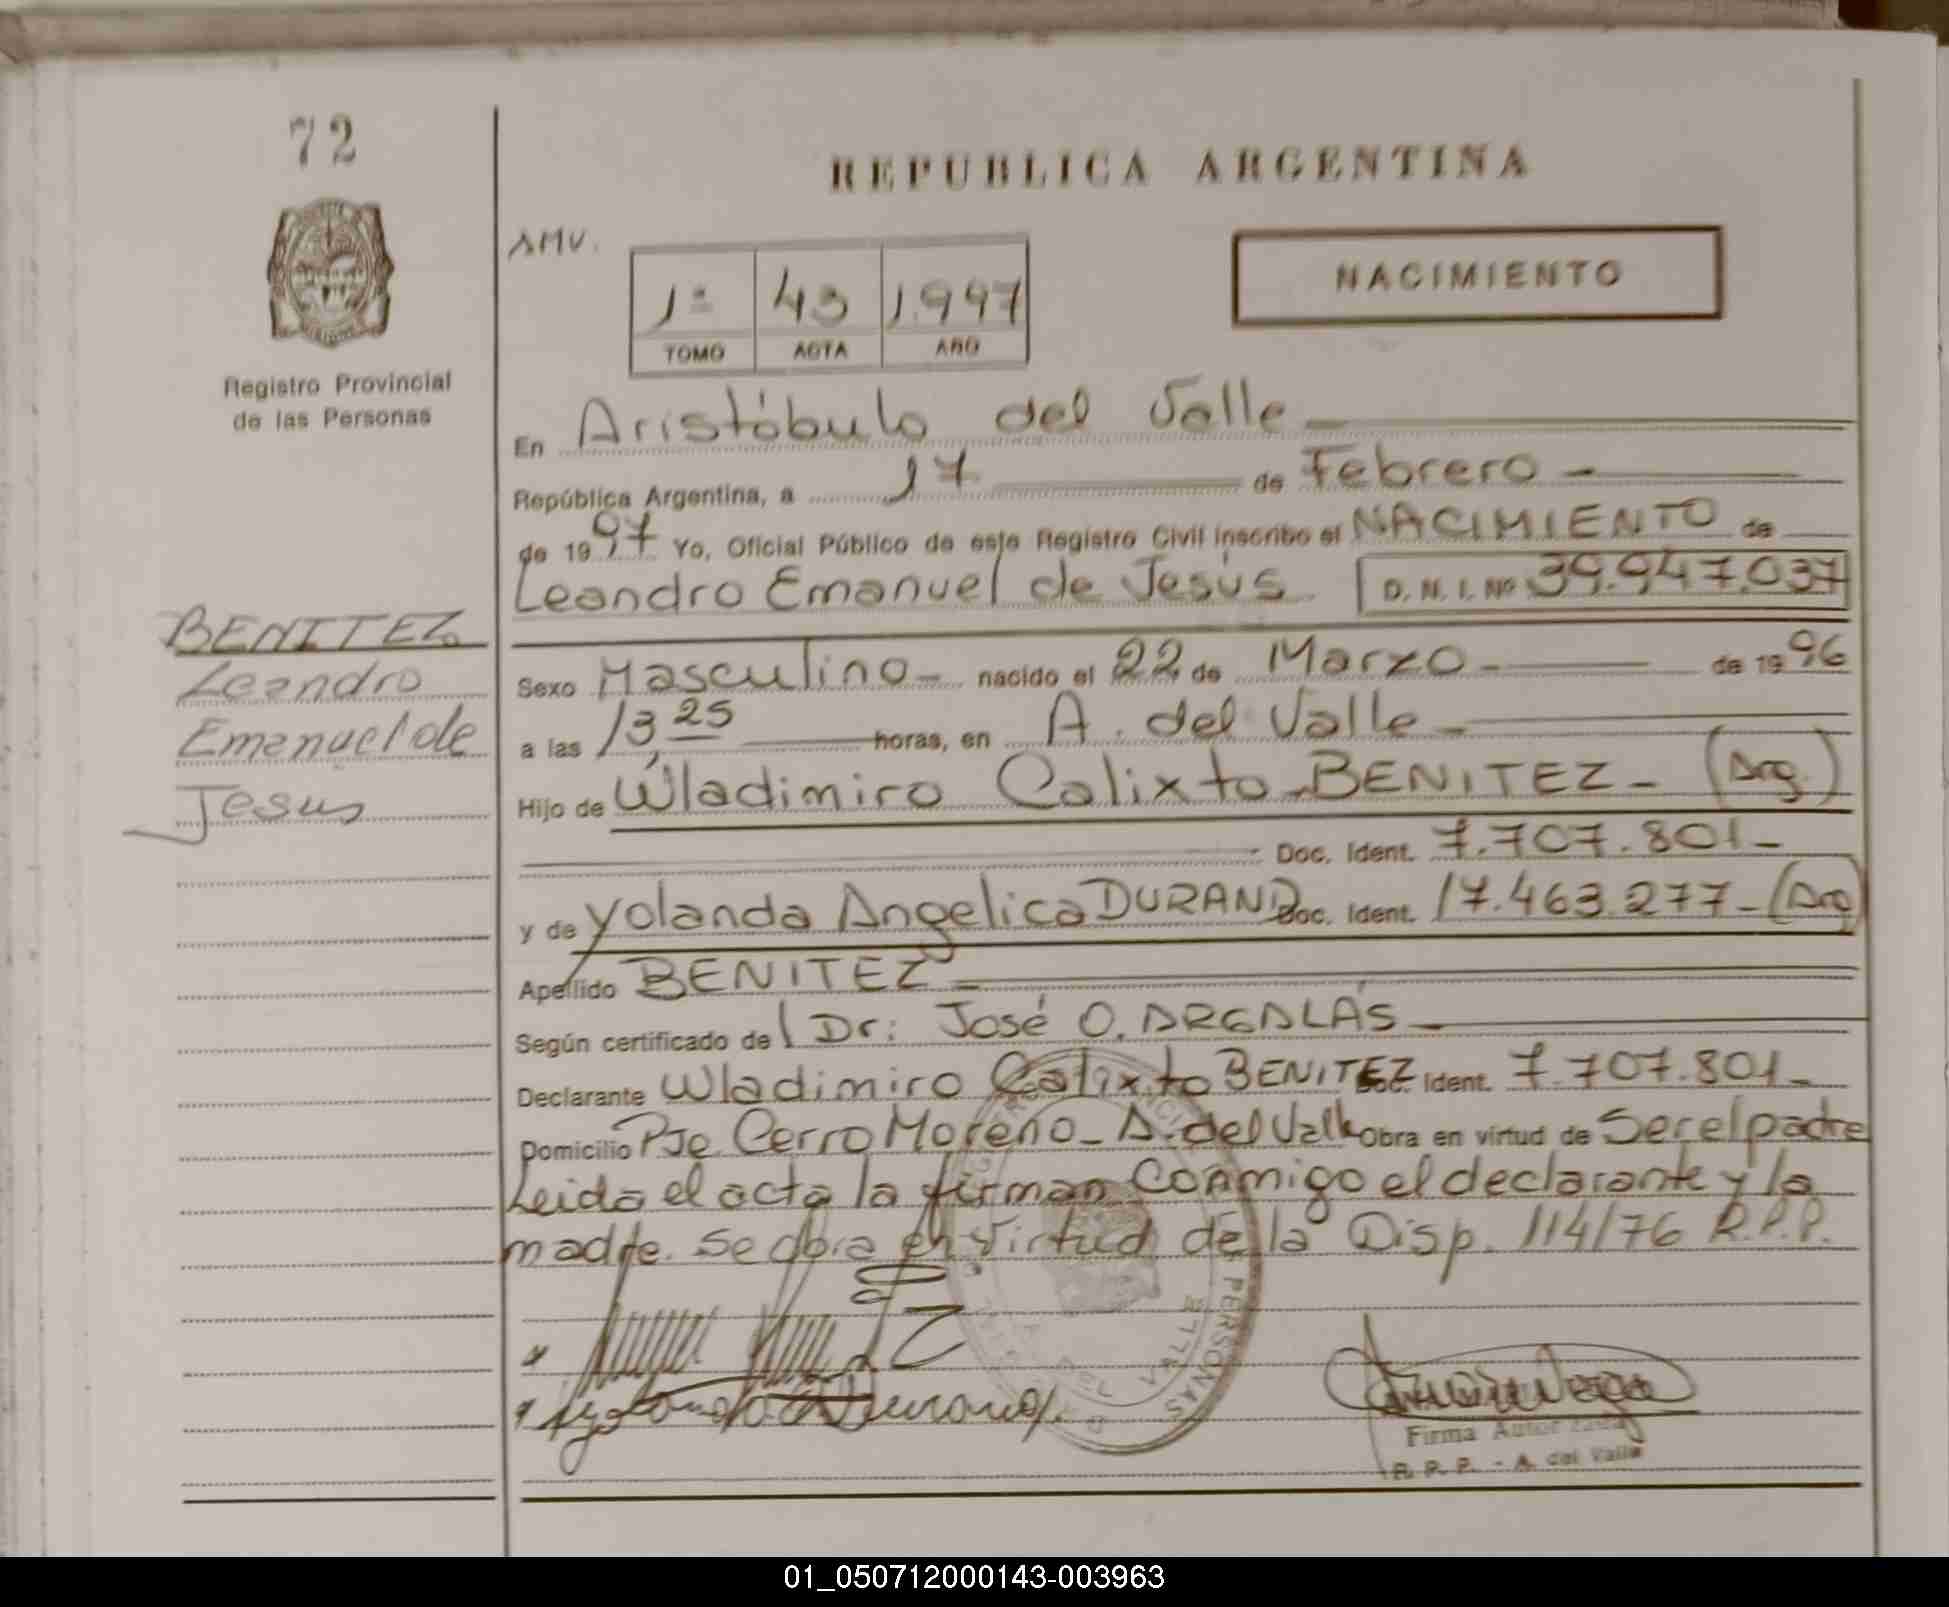 72
REPUBLICA ARGENTINA
AMV.
NACIMIENTO
1º 43 1.997
TOMO ACTA AÑO
Registro Provincial
de las Personas
En Aristóbulo del Valle
República Argentina, a 17 de Febrero -
de 1997 Yo, Oficial Público de este Registro Civil inscribo el NACIMIENTO de
Leandro Emanuel de Jesús D. N. I. Nº 39.947.037
BENITEZ
Leandro
Emanuel de
Jesus
Sexo Masculino - nacido el 22 de Marzo - de 1996
a las 13,25 horas, en A. del Valle -
Hijo de Wladimiro Calixto BENITEZ - (Arg.)
Doc. Ident. 7.707.801 -
y de Yolanda Angelica DURAND Doc. Ident. 17.463.277 - (Arg)
Apellido BENITEZ -
Según certificado de Dr: José O. ARGALAS -
Declarante Wladimiro Calixto BENITEZ Doc. Ident. 7.707.801 -
Domicilio Pje Cerro Moreno - A. del Valle Obra en virtud de Ser el padre
Leida el acta la firman conmigo el declarante y la
madre. Se obra en virtud de la Disp. 114/76 R.P.P.
PERSONAS
DEL VALLE
Firma Autorizada
R. P. P. - A. del Valle
01_050712000143-003963